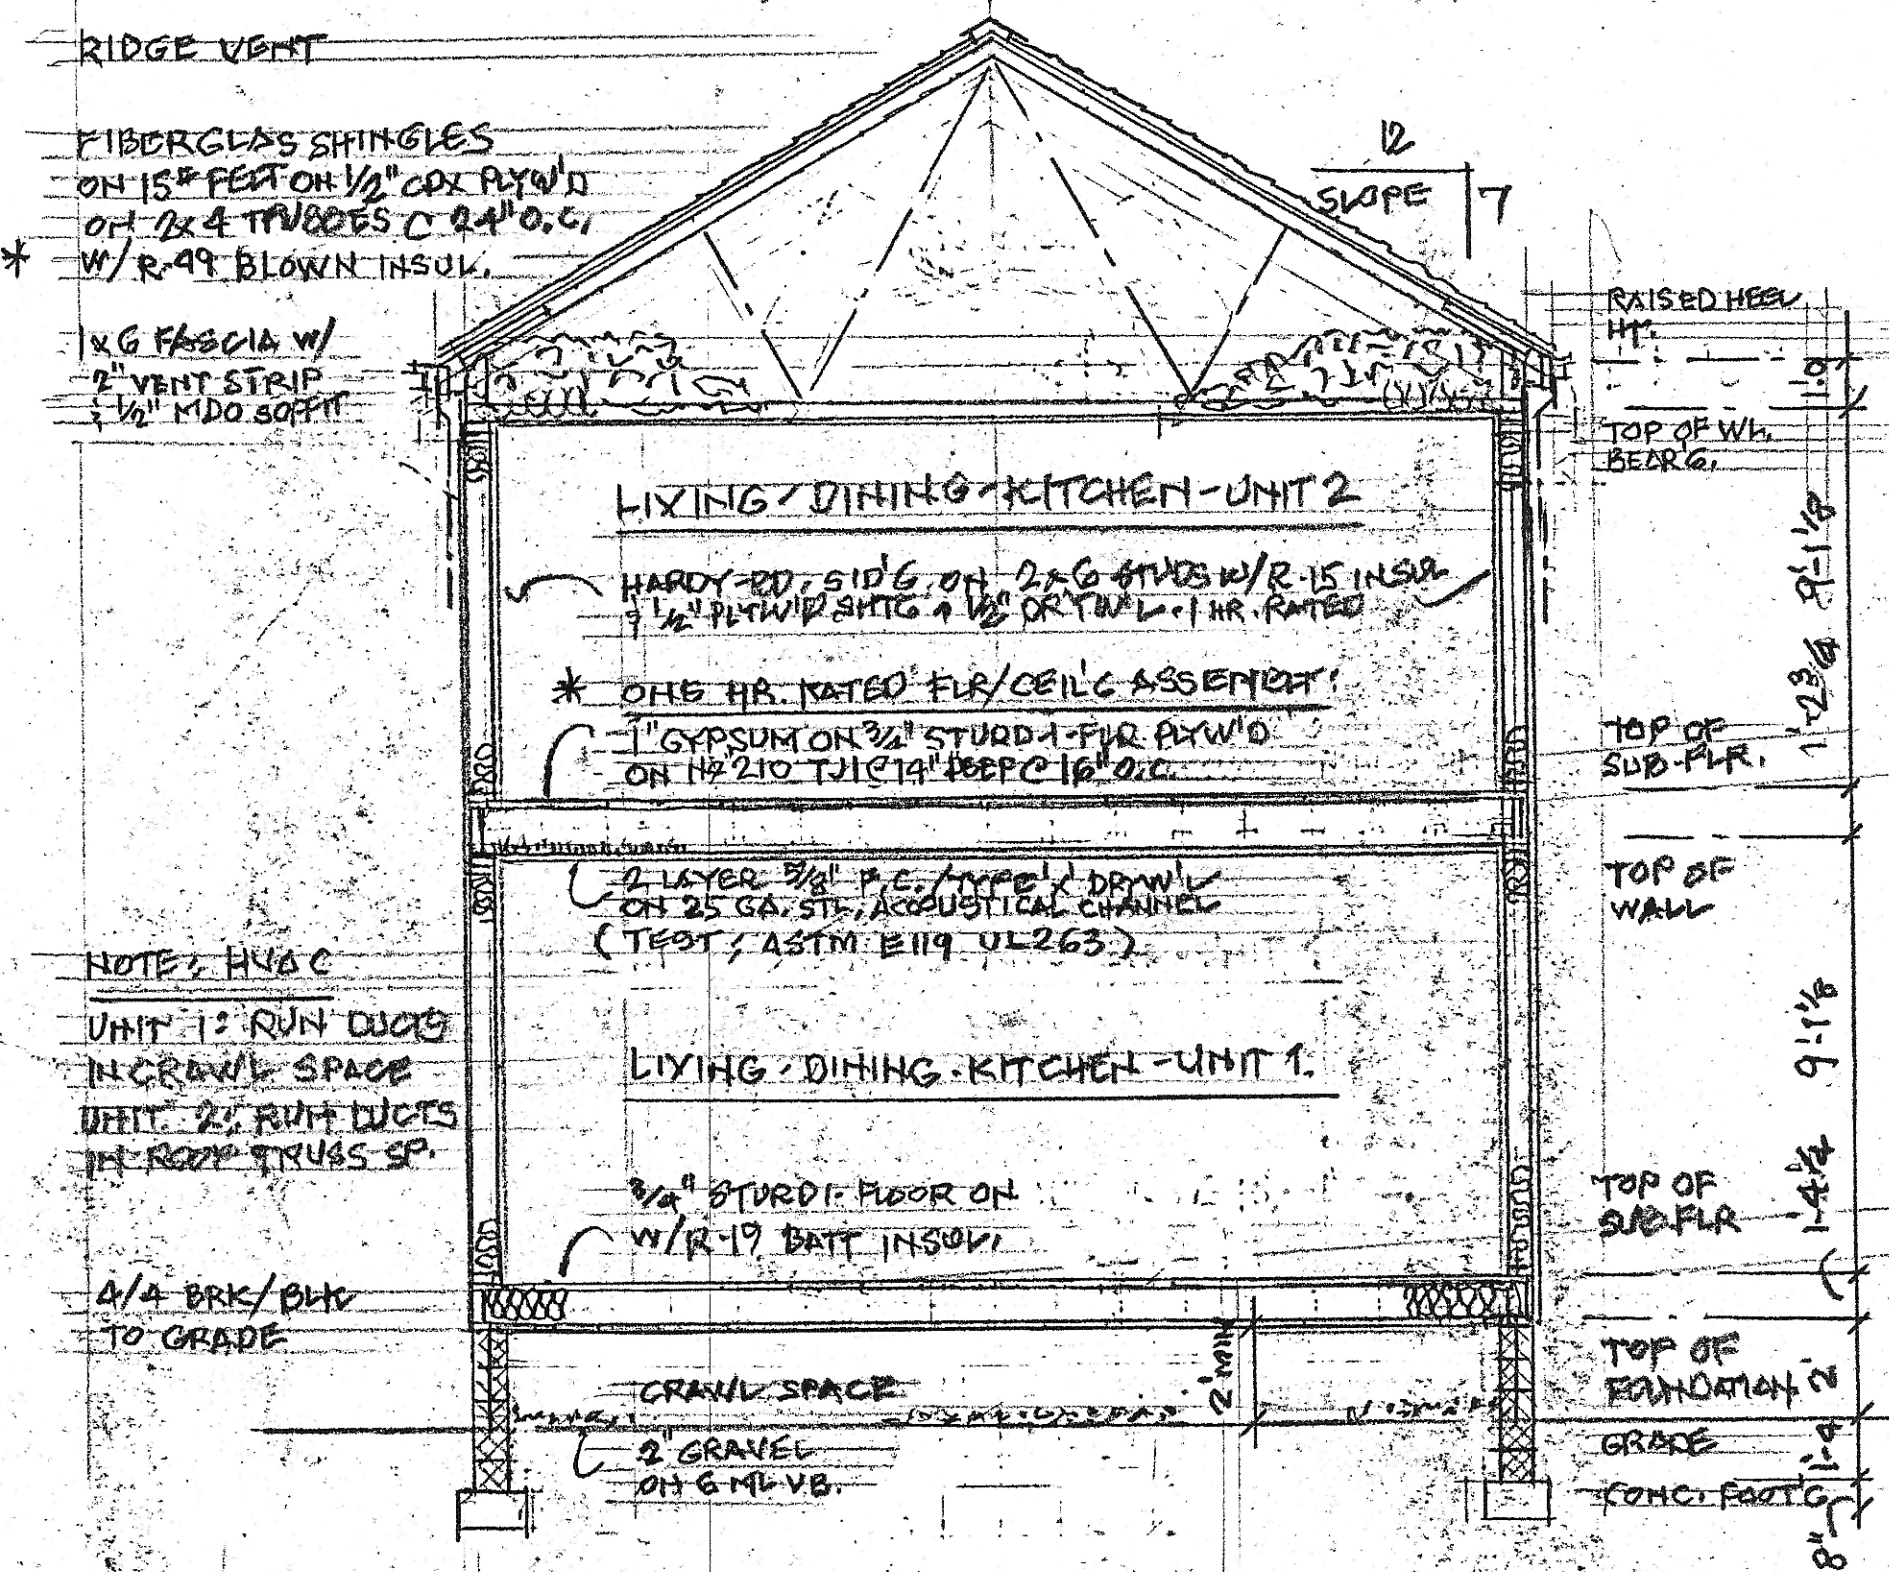 RIDGE VENT
FIBERGLAS SHINGLES
ON 15# FELT ON 1/2" CDX PLYW'D
ON 2x4 TRUSSES @ 24" O.C.
* W/ R-49 BLOWN INSUL.
1x6 FASCIA W/
2" VENT STRIP
& 1/2" MDO SOFFIT
12
SLOPE 7
RAISED HEEL
HT.
1'-0
TOP OF WL.
BEAR'G.
LIVING-DINING-KITCHEN-UNIT 2
HARDY-BD. SID'G. ON 2x6 STUDS W/ R-15 INSUL
& 1/2" PLYW'D SHT'G & 1/2" DRYW'L - 1 HR. RATED
9'-1 1/8
* ONE HR. RATED FLR/CEIL'G ASSEMBLY:
1" GYPSUM ON 3/4" STURD-I-FLR PLYW'D
ON N° 210 TJI @ 14" DEEP @ 16" O.C.
1'-2 3/4
TOP OF
SUB-FLR.
2 LAYER 5/8" F.C./TYPE 'X' DRYW'L
ON 25 GA. STL. ACOUSTICAL CHANNEL
(TEST: ASTM E119 UL263)
TOP OF
WALL
NOTE: HVAC
UNIT 1: RUN DUCTS
IN CRAWL SPACE
UNIT 2: RUN DUCTS
IN ROOF TRUSS SP.
LIVING-DINING-KITCHEN-UNIT 1.
9'-1 1/8
3/4" STURDI-FLOOR ON
W/R-19 BATT INSUL.
TOP OF
SUB-FLR
1'-4 1/4
4/4 BRK/BLK
TO GRADE
CRAWL SPACE
2' MIN
TOP OF
FOUNDATION
2'
2" GRAVEL
ON 6 ML VB.
GRADE
1'-4
CONC. FOOT'G
8"